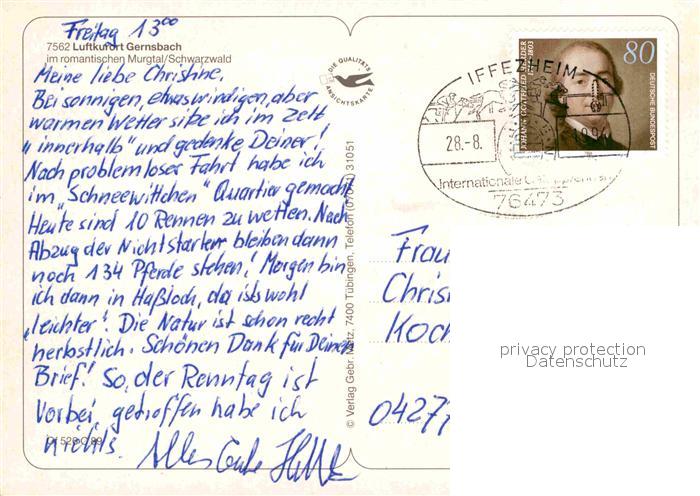 Freitag 13⁰⁰
7562 Luftkurort Gernsbach
im romantischen Murgtal/Schwarzwald
Meine liebe Christine,
Bei sonnigen, etwas windigen, aber
warmen Wetter sitze ich im Zelt
"innerhalb" und gedenke Deiner!
Nach problemloser Fahrt habe ich
im "Schneewittchen" Quartier gemacht
Heute sind 10 Rennen zu wetten. Nach
Abzug der Nichtstarter bleiben dann
noch 134 Pferde stehen! Morgen bin
ich dann in Haßloch, da ists wohl
"leichter". Die Natur ist schon recht
herbstlich. Schönen Dank für Deinen
Brief! So, der Renntag ist
vorbei, getroffen habe ich
nichts. Alles Gute
DIE QUALITÄTS
ANSICHTSKARTE
© Verlag Gebr. Metz, 7400 Tübingen, Telefon (07071) 31051
JOHANN GOTTFRIED HERDER
1744-1803
80
DEUTSCHE BUNDESPOST
IFFEZHEIM
28.-8.
Internationale
76473
Frau
Chris
Koch
04277
privacy protection
Datenschutz